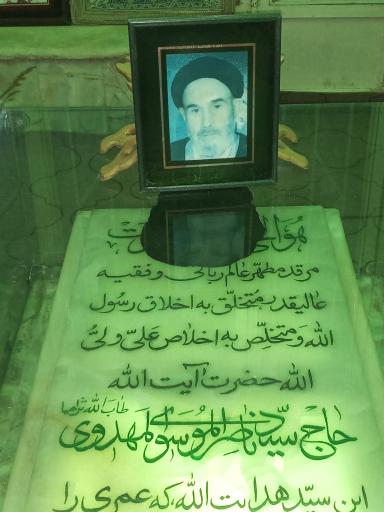 هو الحی
مرقد مطهر عالم ربانی و فقیه
عالیقدر متخلق به اخلاق رسول
الله و متخلص به اخلاص علیّ ولیُّ
الله حضرت آیت الله
حاج سیّد ناصر الموسوی لمهدوی طاب الله ثراهما
ابن سیّد هدایت الله که عمری را